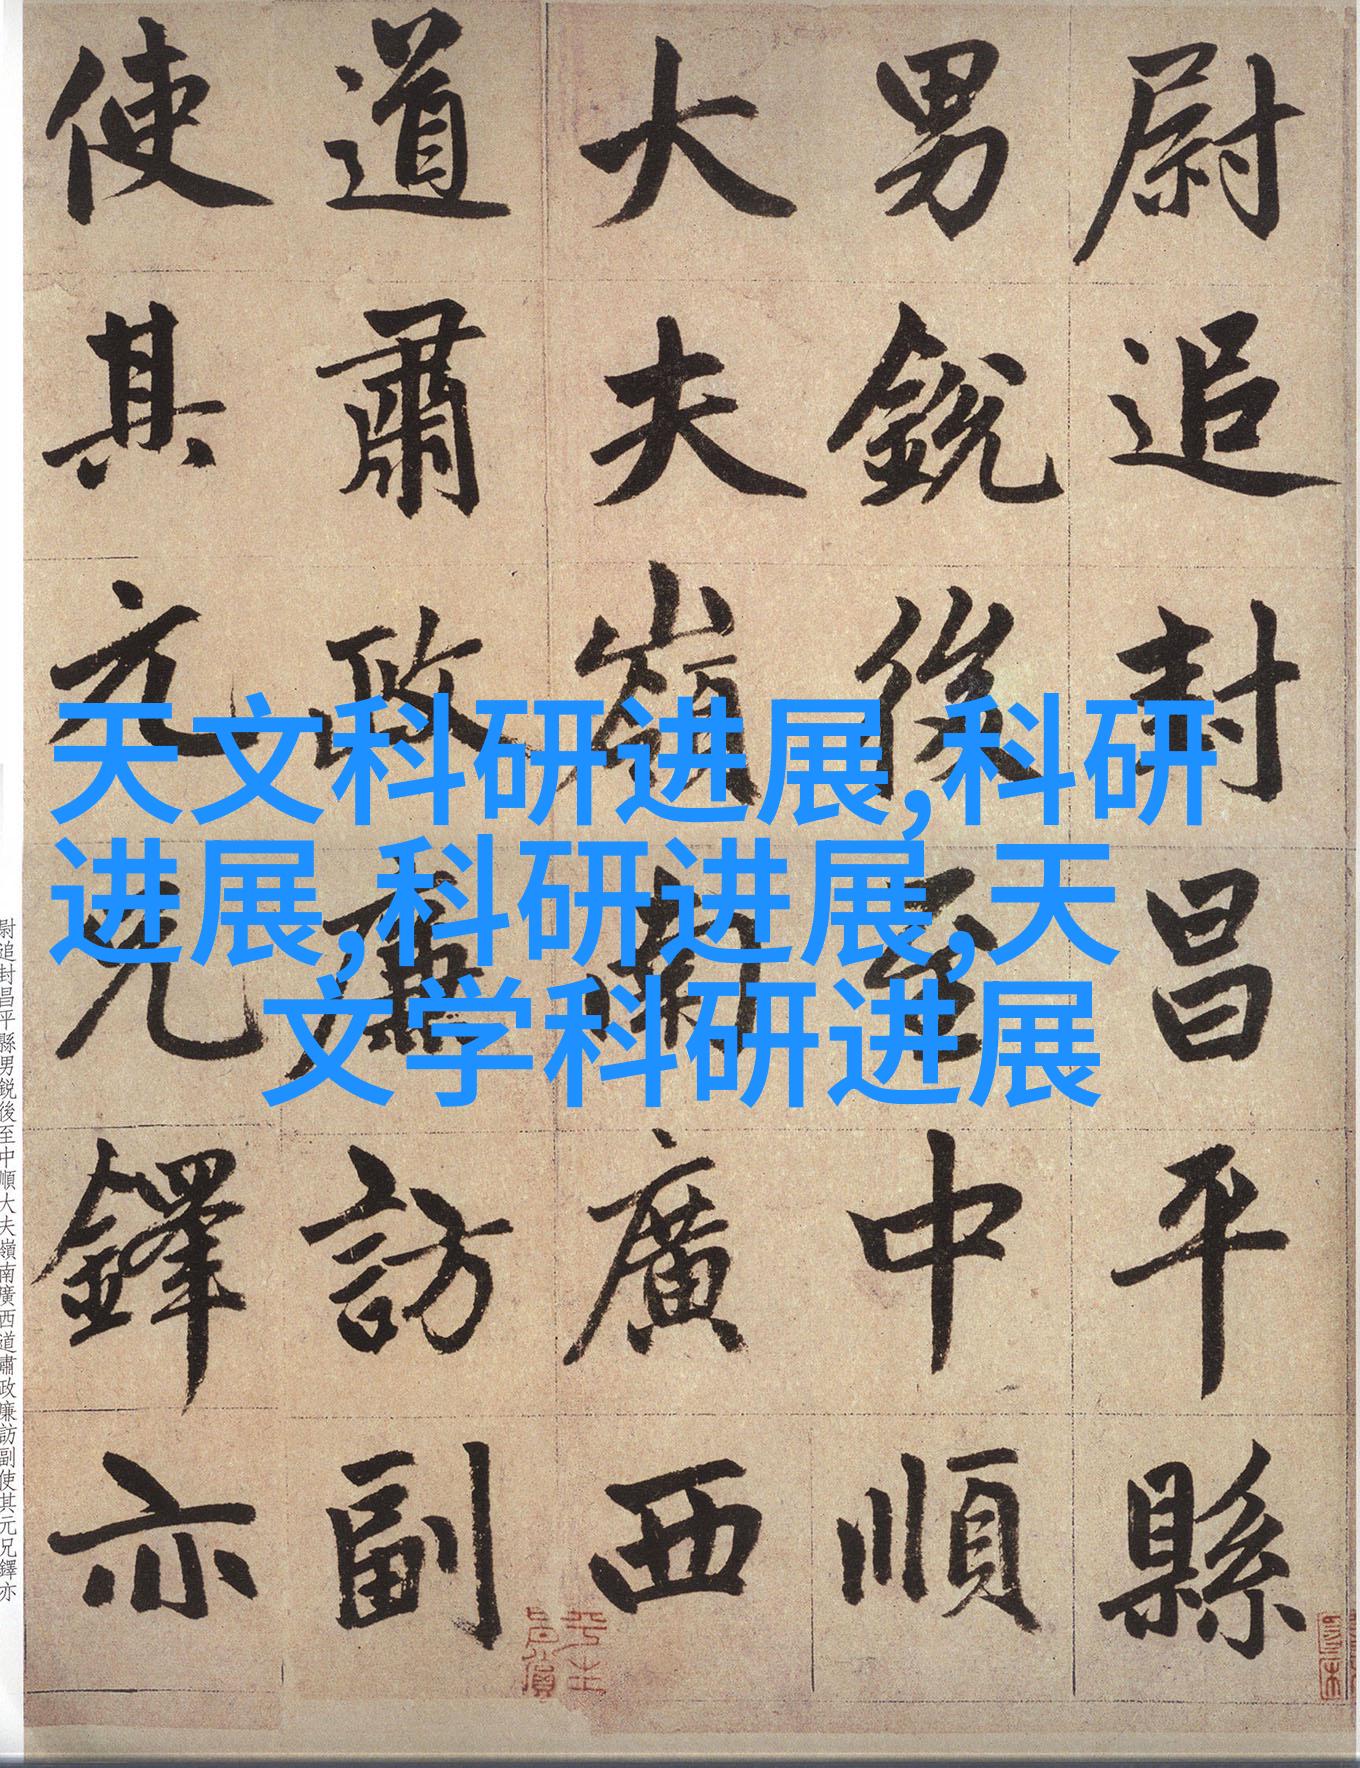 尉追封昌平縣
男鋭後至中順
大夫嶺南廣西
道肅政廉訪副
使其元兄鐸亦
天文科研进展,科研
进展,科研进展,天
文学科研进展
尉追封昌平縣男鋭後至中順大夫嶺南廣西道肅政廉訪副使其元兄鐸亦